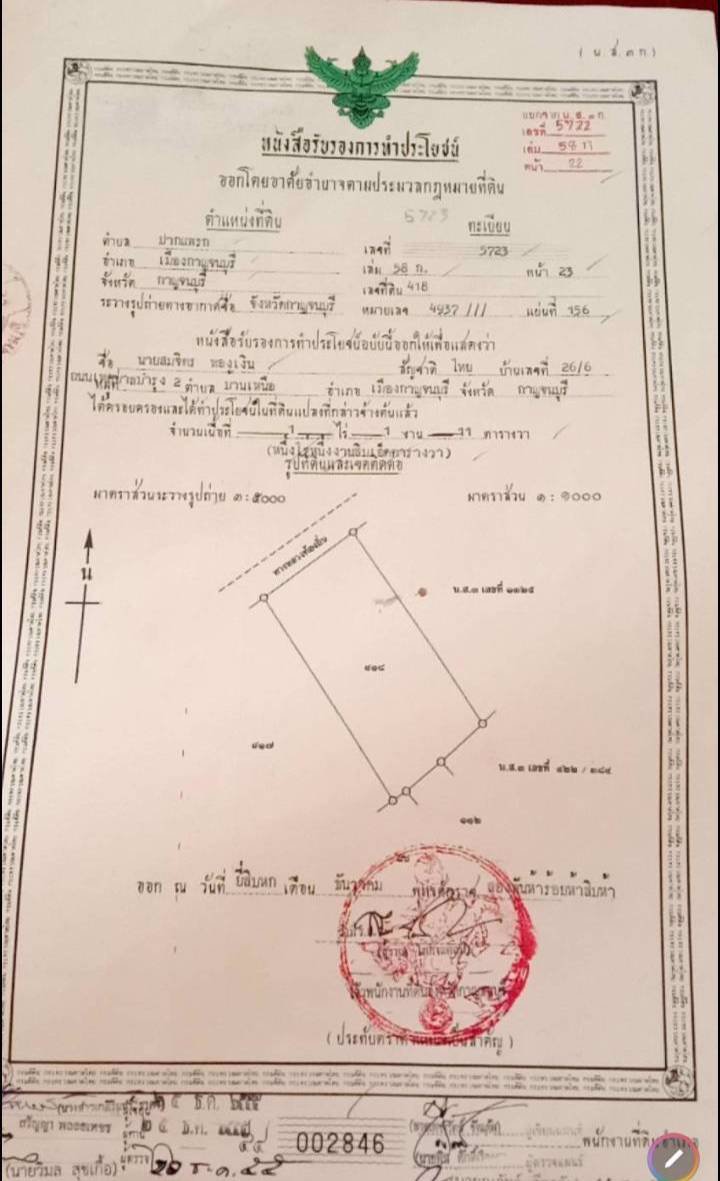 ( น.ส.๓ ก )
แยกจาก น.ส.๓ ก.
เลขที่ 5722
เล่ม 58 ก
หน้า 22
หนังสือรับรองการทำประโยชน์
ออกโดยอาศัยอำนาจตามประมวลกฎหมายที่ดิน
5723
ตำแหน่งที่ดิน ทะเบียน
ตำบล ปากแพรก เลขที่ 5723
อำเภอ เมืองกาญจนบุรี เล่ม 58 ก. หน้า 23
จังหวัด กาญจนบุรี เลขที่ดิน 418
ระวางรูปถ่ายทางอากาศชื่อ จังหวัดกาญจนบุรี หมายเลข 4937 III แผ่นที่ 156
หนังสือรับรองการทำประโยชน์ฉบับนี้ออกให้เพื่อแสดงว่า
ชื่อ นายสมจิตร ทองเงิน สัญชาติ ไทย บ้านเลขที่ 26/6
ถนน 2 ตำบล บ้านเหนือ อำเภอ เมืองกาญจนบุรี จังหวัด กาญจนบุรี
ได้ครอบครองและได้ทำประโยชน์ในที่ดินแปลงที่กล่าวข้างต้นแล้ว
จำนวนเนื้อที่ 1 ไร่ 1 งาน 11 ตารางวา
(หนึ่งไร่หนึ่งงานสิบเอ็ดตารางวา)
รูปที่ดินและเขตติดต่อ
มาตราส่วนระวางรูปถ่าย ๑ : ๕๐๐๐ มาตราส่วน ๑ : ๑๐๐๐
ทางหลวงท้องถิ่น
น
น.ส.๓ เลขที่ ๑๓๒๕
๔๑๘
๔๑๗
น.ส.๓ เลขที่ ๔๒๒ / ๓๘๔
๑๑๒
ออก ณ วันที่ ยี่สิบหก เดือน ธันวาคม พุทธศักราช สองพันห้าร้อยห้าสิบห้า
( ประทับตราตำแหน่งเป็นสำคัญ )
๒๕ ธ.ค.
002846
พนักงานที่ดินอำเภอ
(นายวิมล สุขเกื้อ) ผู้ตรวจ ๒๐ ธ.ค. ๕๕